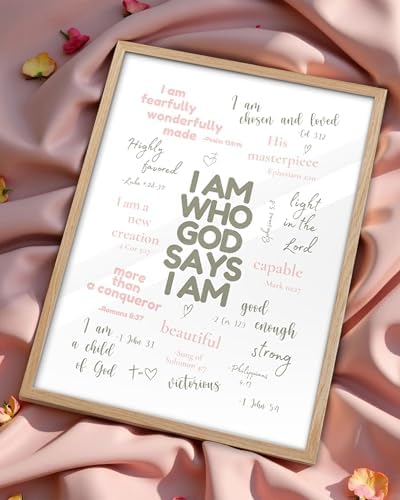 I am
fearfully
wonderfully
made -Psalm 139:14
I am
chosen and loved
- Col. 3:12
His
masterpiece
Ephesians 2:10
Highly
favored
- Luke 1:28-37
I AM
WHO
GOD
SAYS
I AM
light
in the
Lord
Ephesians 5:8
I am a
new
creation
2 Cor 5:17
capable
Mark 10:27
more
than
a conqueror
-Romans 8:37
good
enough
- 2 Co. 12:9
I am
a child
of God
- 1 John 3:1
beautiful
-Song of
Solomon 4:7
strong
-Philippians
4:13
victorious
- 1 John 5:4